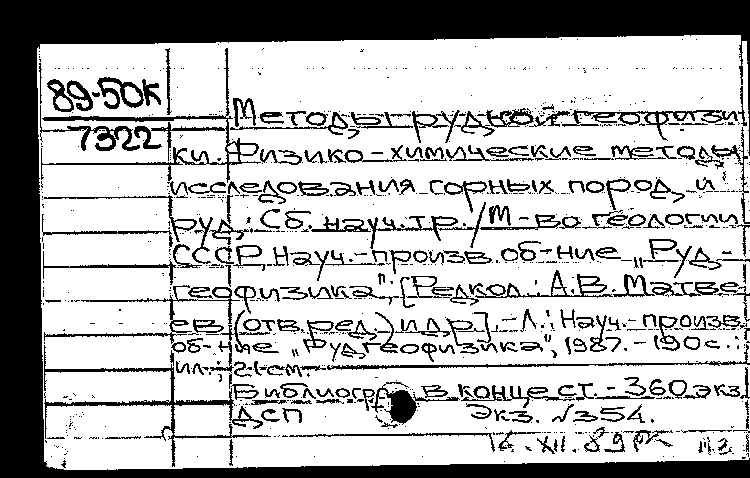 89-50К
7322
Методы рудной геофизи
ки. Физико-химические методы
исследования горных пород и
руд: Сб. науч. тр. / М-во геологии
СССР, Науч.-произв. об-ние „Руд-
геофизика"; [Редкол.: А.В. Матве
ев (отв. ред.) и др.]. - Л.: Науч.-произв.
об-ние „Рудгеофизика", 1987. - 190 с.:
ил.; 21 см.
Библиогр. в конце ст. - 360 экз.
ДСП Экз. №354.
16.XII.89